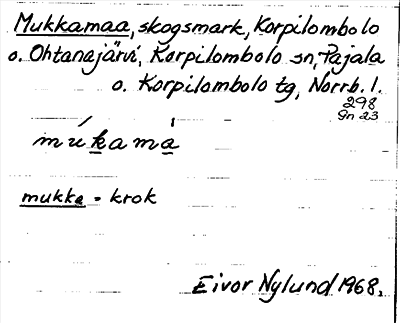 Mukkamaa, skogsmark, Korpilombolo
o. Ohtanajärvi, Korpilombolo sn, Pajala
o. Korpilombolo tg, Norrb. l.
298
Gn 23
múkamà
mukka = krok
Eivor Nylund 1968.